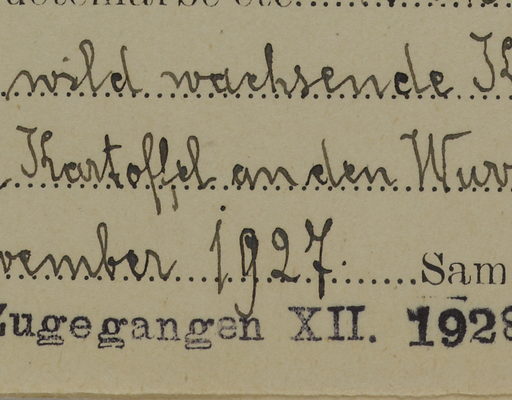 etc.
wild wachsende K
Kartoffel an den Wurz
vember 1927. Sam
Zugegangen XII. 1928